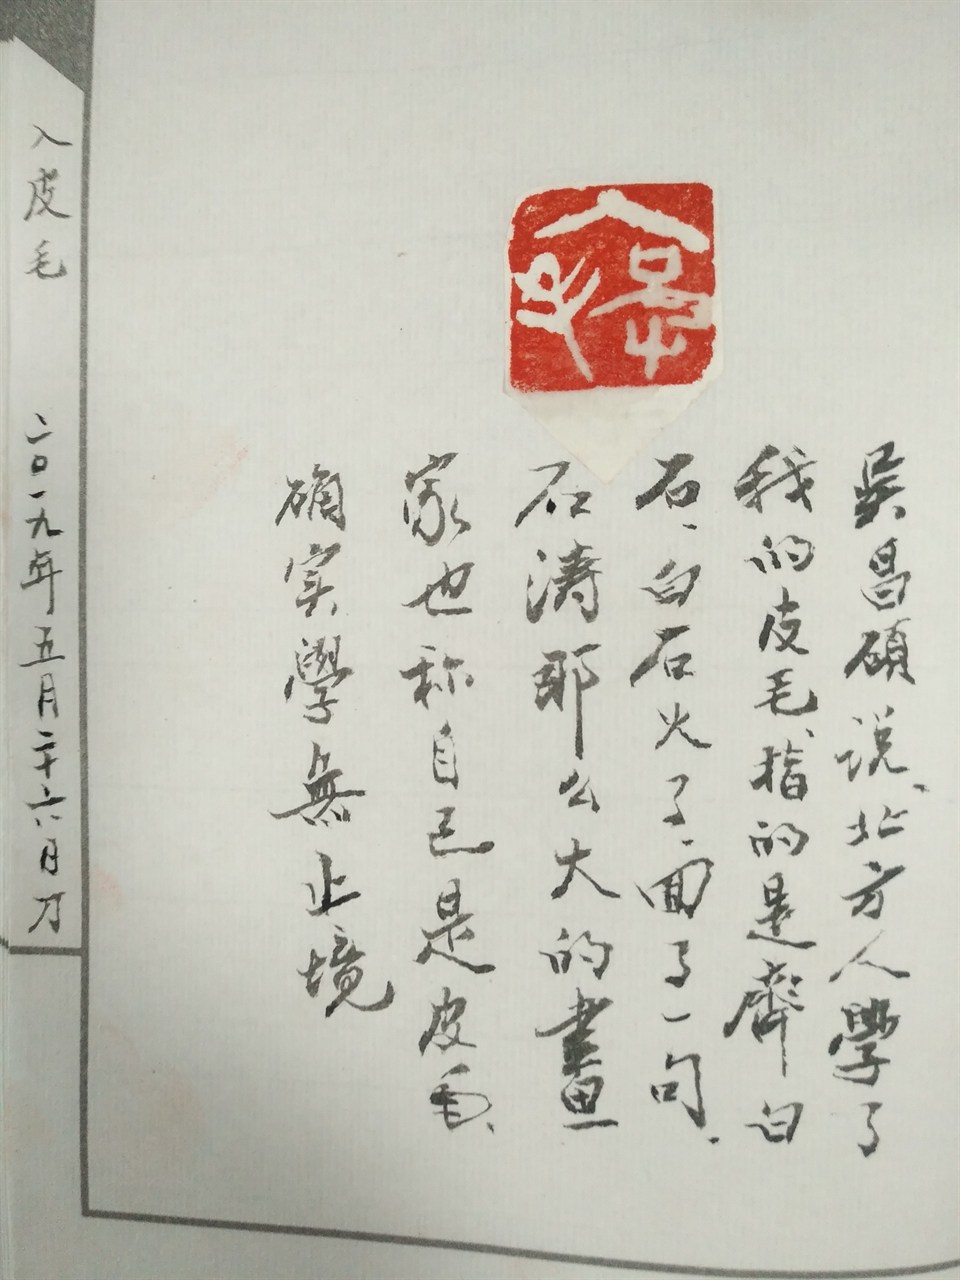 吴昌碩说、北方人學了
我的皮毛、指的是齊白
石、白石火了、回了一句、
石涛那么大的畫
家也称自己是皮毛、
确实學無止境
入皮毛
二〇一九年五月二十六日刀